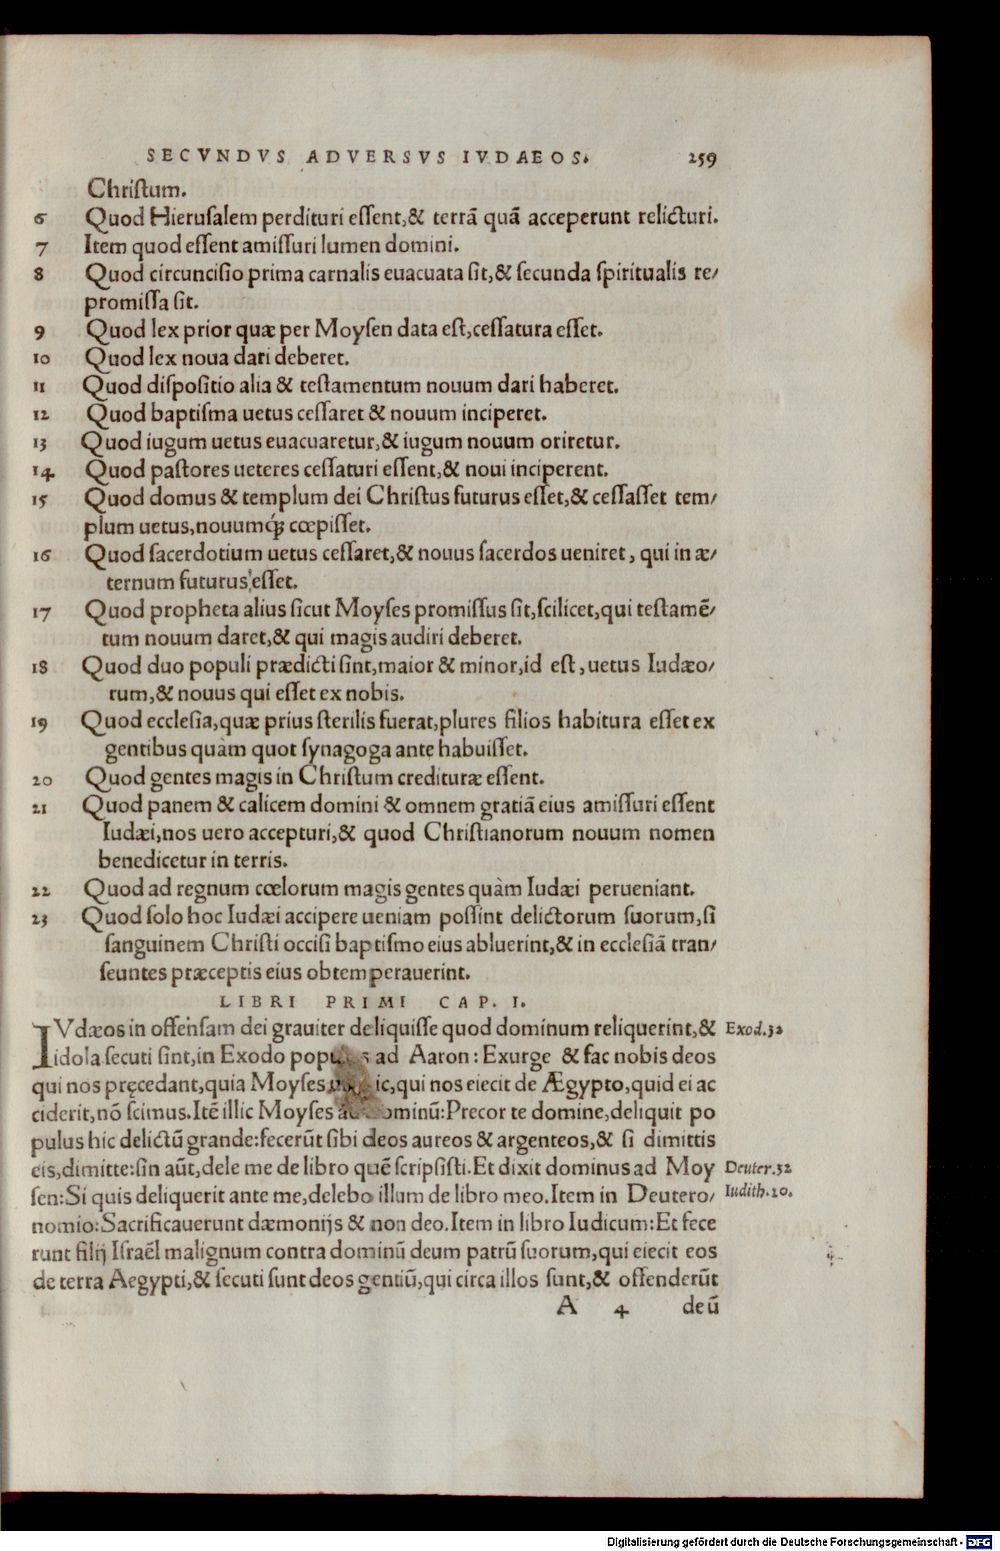 SECVNDVS ADVERSVS IVDAEOS. 259
Christum.
6 Quod Hierusalem perdituri essent,& terrã quã acceperunt relicturi.
7 Item quod essent amissuri lumen domini.
8 Quod circuncisio prima carnalis euacuata sit,& secunda spiritualis re/
promissa sit.
9 Quod lex prior quæ per Moysen data est,cessatura esset.
10 Quod lex noua dari deberet.
11 Quod dispositio alia & testamentum nouum dari haberet.
12 Quod baptisma uetus cessaret & nouum inciperet.
13 Quod iugum uetus euacuaretur,& iugum nouum oriretur.
14 Quod pastores ueteres cessaturi essent,& noui inciperent.
15 Quod domus & templum dei Christus futurus esset,& cessasset tem/
plum uetus,nouumq́; cœpisset.
16 Quod sacerdotium uetus cessaret,& nouus sacerdos ueniret, qui in æ/
ternum futurus esset.
17 Quod propheta alius sicut Moyses promissus sit,scilicet,qui testamẽ/
tum nouum daret,& qui magis audiri deberet.
18 Quod duo populi prædicti sint,maior & minor,id est, uetus Iudæo/
rum,& nouus qui esset ex nobis.
19 Quod ecclesia,quæ prius sterilis fuerat,plures filios habitura esset ex
gentibus quàm quot synagoga ante habuisset.
20 Quod gentes magis in Christum credituræ essent.
21 Quod panem & calicem domini & omnem gratiã eius amissuri essent
Iudæi,nos uero accepturi,& quod Christianorum nouum nomen
benedicetur in terris.
22 Quod ad regnum cœlorum magis gentes quàm Iudæi perueniant.
23 Quod solo hoc Iudæi accipere ueniam possint delictorum suorum,si
sanguinem Christi occisi baptismo eius abluerint,& in ecclesiã tran/
seuntes præceptis eius obtemperauerint.
LIBRI PRIMI CAP. I.
IVdæos in offensam dei grauiter deliquisse quod dominum reliquerint,& Exod.32
idola secuti sint,in Exodo ad Aaron: Exurge & fac nobis deos
qui nos pręcedant,quia Moyses qui nos eiecit de Ægypto,quid ei ac
ciderit,nõ scimus.Itẽ illic Moyses :Precor te domine,deliquit po
pulus hic delictũ grande:fecerũt sibi deos aureos & argenteos,& si dimittis
eis,dimitte:sin aũt,dele me de libro quẽ scripsisti.Et dixit dominus ad Moy Deuter.32
sen:Si quis deliquerit ante me,delebo illum de libro meo.Item in Deutero/ Iudith.20.
nomio:Sacrificauerunt dæmonijs & non deo.Item in libro Iudicum:Et fece
runt filij Israẽl malignum contra dominũ deum patrũ suorum,qui eiecit eos
de terra Aegypti,& secuti sunt deos gentiũ,qui circa illos sunt,& offenderũt
A 4 deũ
Digitalisierung gefördert durch die Deutsche Forschungsgemeinschaft - DFG